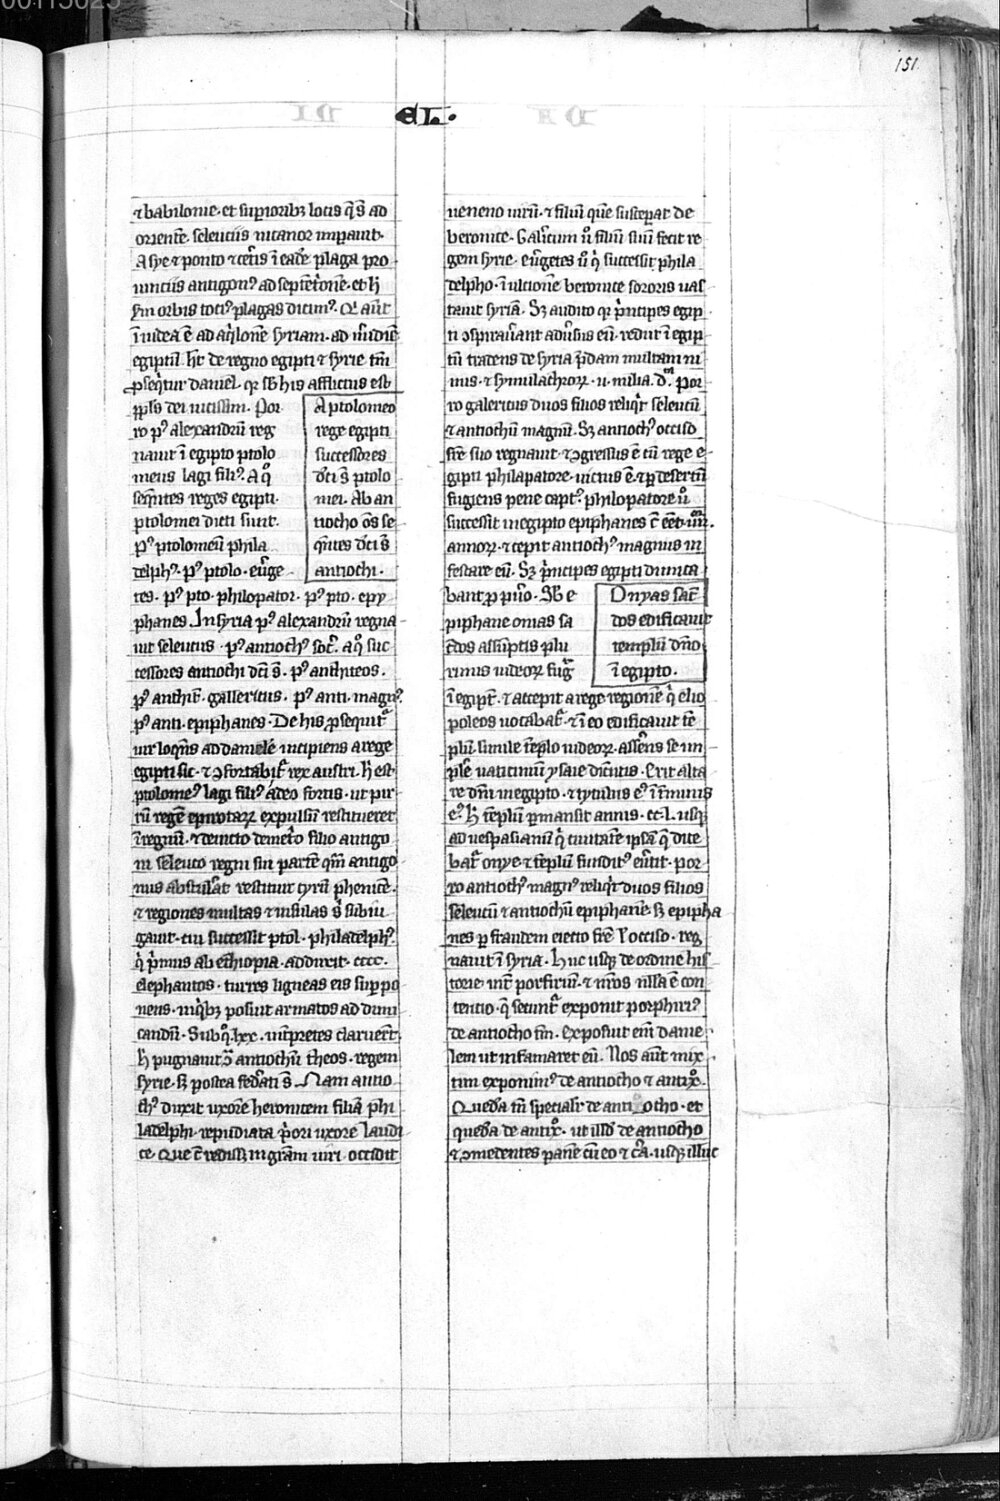 00113025
151
EL.
⁊ babilonie. et suꝑioribꝫ locis q̄ s̄ ad
oriente. seleucus nicanor imꝑauit.
Asye ⁊ ponto ⁊ cet̄is ī eadē plaga pro
uinciis antigonꝰ ad septēt̓onē. et h̄
sm orbis totiꝰ plagas dicimꝰ. Q̓ aūt
ī iudea ē ad aq̓lonē syriam. ad m̓idiē
egiptū. hic de regno egipti ⁊ syrie tm̄
ꝓseq̄tur daniel. qꝛ sb his afflictus est
ppl̓s dei iuctissim. Por
ro pꝰ alexandrū reg
nauit ī egipto ptolo
meus lagi filiꝰ. A q̊
seq̄ntes reges egipti.
ptolomei dicti sunt.
Pꝰ ptolomeū phila
delphꝰ. pꝰ ptolo. eu̓ge
A ptolomeo
rege egipti
successores
dc̄i s̄ ptolo
mei. Ab an
tiocho oēs se
q̄ntes dc̄i s̄
antiochi.
tes. pꝰ pto. philopator. pꝰ pto. epy
phanes. In syria pꝰ alexandrū regna
uit seleucus. pꝰ antiochꝰ sot̄. a q̊ suc
cessores antiochi dc̄i s̄. pꝰ anthiteos.
pꝰ anthit̄. gallericus. pꝰ anti. magnꝰ
pꝰ anti. epiphanes. De his ꝓsequit̄
uir loqn̄s ad danielē incipiens a rege
egipti sic. ⁊ ꝯfortabit̄ rex austri. h̄ est
ptolomeꝰ lagi filiꝰ adeo fortis. ut pir
rū regē epirotaꝝ expulsū restitueret
ī regnū. ⁊ deuicto demet̓o filio antigo
ni seleuco regni sui partē qm̄ antigo
nus abstul̓at restituit tyrū phenicē.
⁊ regiones multas ⁊ insulas s̄ subiu
gauit. cui successit ptol. philadelphꝰ.
q̓ p̓mus ab ethiopia. adduxit. cccc.
elephantos. turres ligneas eis suꝑpo
nens. in q̓bꝫ posuit armatos ad dimi
candū. Sub q̊. lxx. int̓pretes claruer̄t
h̄ pugnauit ꝯ̄ antiochū theos. regem
syrie. sꝫ postea fed̓ati s̄. Nam antio
chꝰ duxit uxorē beronicem filiā phi
ladelphi. repudiata p̓ori uxore laudi
ce. Que c̄ redissꝫ in gr̄am uiri. occidit
ueneno uirū. ⁊ filiū que susceꝑat de
beronice. Gal̓icum u̓ filiū suū fecit re
gem syrie. eu̓getes u̓ q̓ successit phila
delpho. ī ultionē beronice sororis uas
tauit syriā. Sꝫ audito qꝛ p̓ncipes egip
ti ꝯspirau̓ant adu̓sus eū. rediit ī egip
tū tradens de syria p̄dam multam ni
mis. ⁊ symulachroꝝ. ii. milia. d. Por
ro galericus duos filios reliq̓t seleucū
⁊ antiochū magnū. Sꝫ antiochꝰ occiso
fr̄e suo regnauit. ⁊ ꝯgressus ē cū rege e
gipti philapatore. uictus ē. ⁊ ꝑ desertū
fugiens pene captꝰ. philopatore u̓
successit in egipto epiphanes c̄ eēt. iiii.
annoꝝ. ⁊ cepit antiochꝰ magnus in
festare eū. Sꝫ p̓ncipes egipti dimica
bant ꝓ puero. Sb e
piphane onias sa
c̄dos assūptis plu
rimis iudeoꝝ fug̓
Onyas sac̄
dos edificauit
templū dn̄o
ī egipto.
ī egipt̄. ⁊ accepit a rege regionē q̄ elio
poleos uocabat̄. ⁊ ī eo edificauit tē
plū. simile tēplo iudeoꝝ. asserēs se im
ple uaticiniū ysaie dicētis. Erit alta
re dn̄i in egipto. ⁊ tytulus eꝰ ī t̄minis
eꝰ. h̄ tēplū ꝑmansit annis. cc. l. usqꝫ
ad uespasianū q̓ ciuitatē ipsā q̄ dice
bat̄ onye ⁊ tēplū funditꝰ eu̓tit. por
ro antiochꝰ magnꝰ reliq̓t duos filios
seleucū ⁊ antiochū epiphanē. sꝫ epipha
nes ꝑ fraudem eiecto fr̄e l̓ occiso. reg
nauit ī syria. Huc usqꝫ de ordine his
torie. int̓ porfiriū. ⁊ nr̄os nulla ē con
tentio. q̄ secunt̄ exponit porphiriꝰ
de antiocho sm̄. Exposuit eni̓ danie
lem ut infamaret eū. Nos aūt mix
tim exponimꝰ de antiocho ⁊ antix̊.
Quedā tn̄ specialit̓ de antiocho. et
quedā de antix̊. ut illd̓ de antiocho
⁊ ꝯmedentes panē cū eo ⁊ cet̓a. usqꝫ illuc